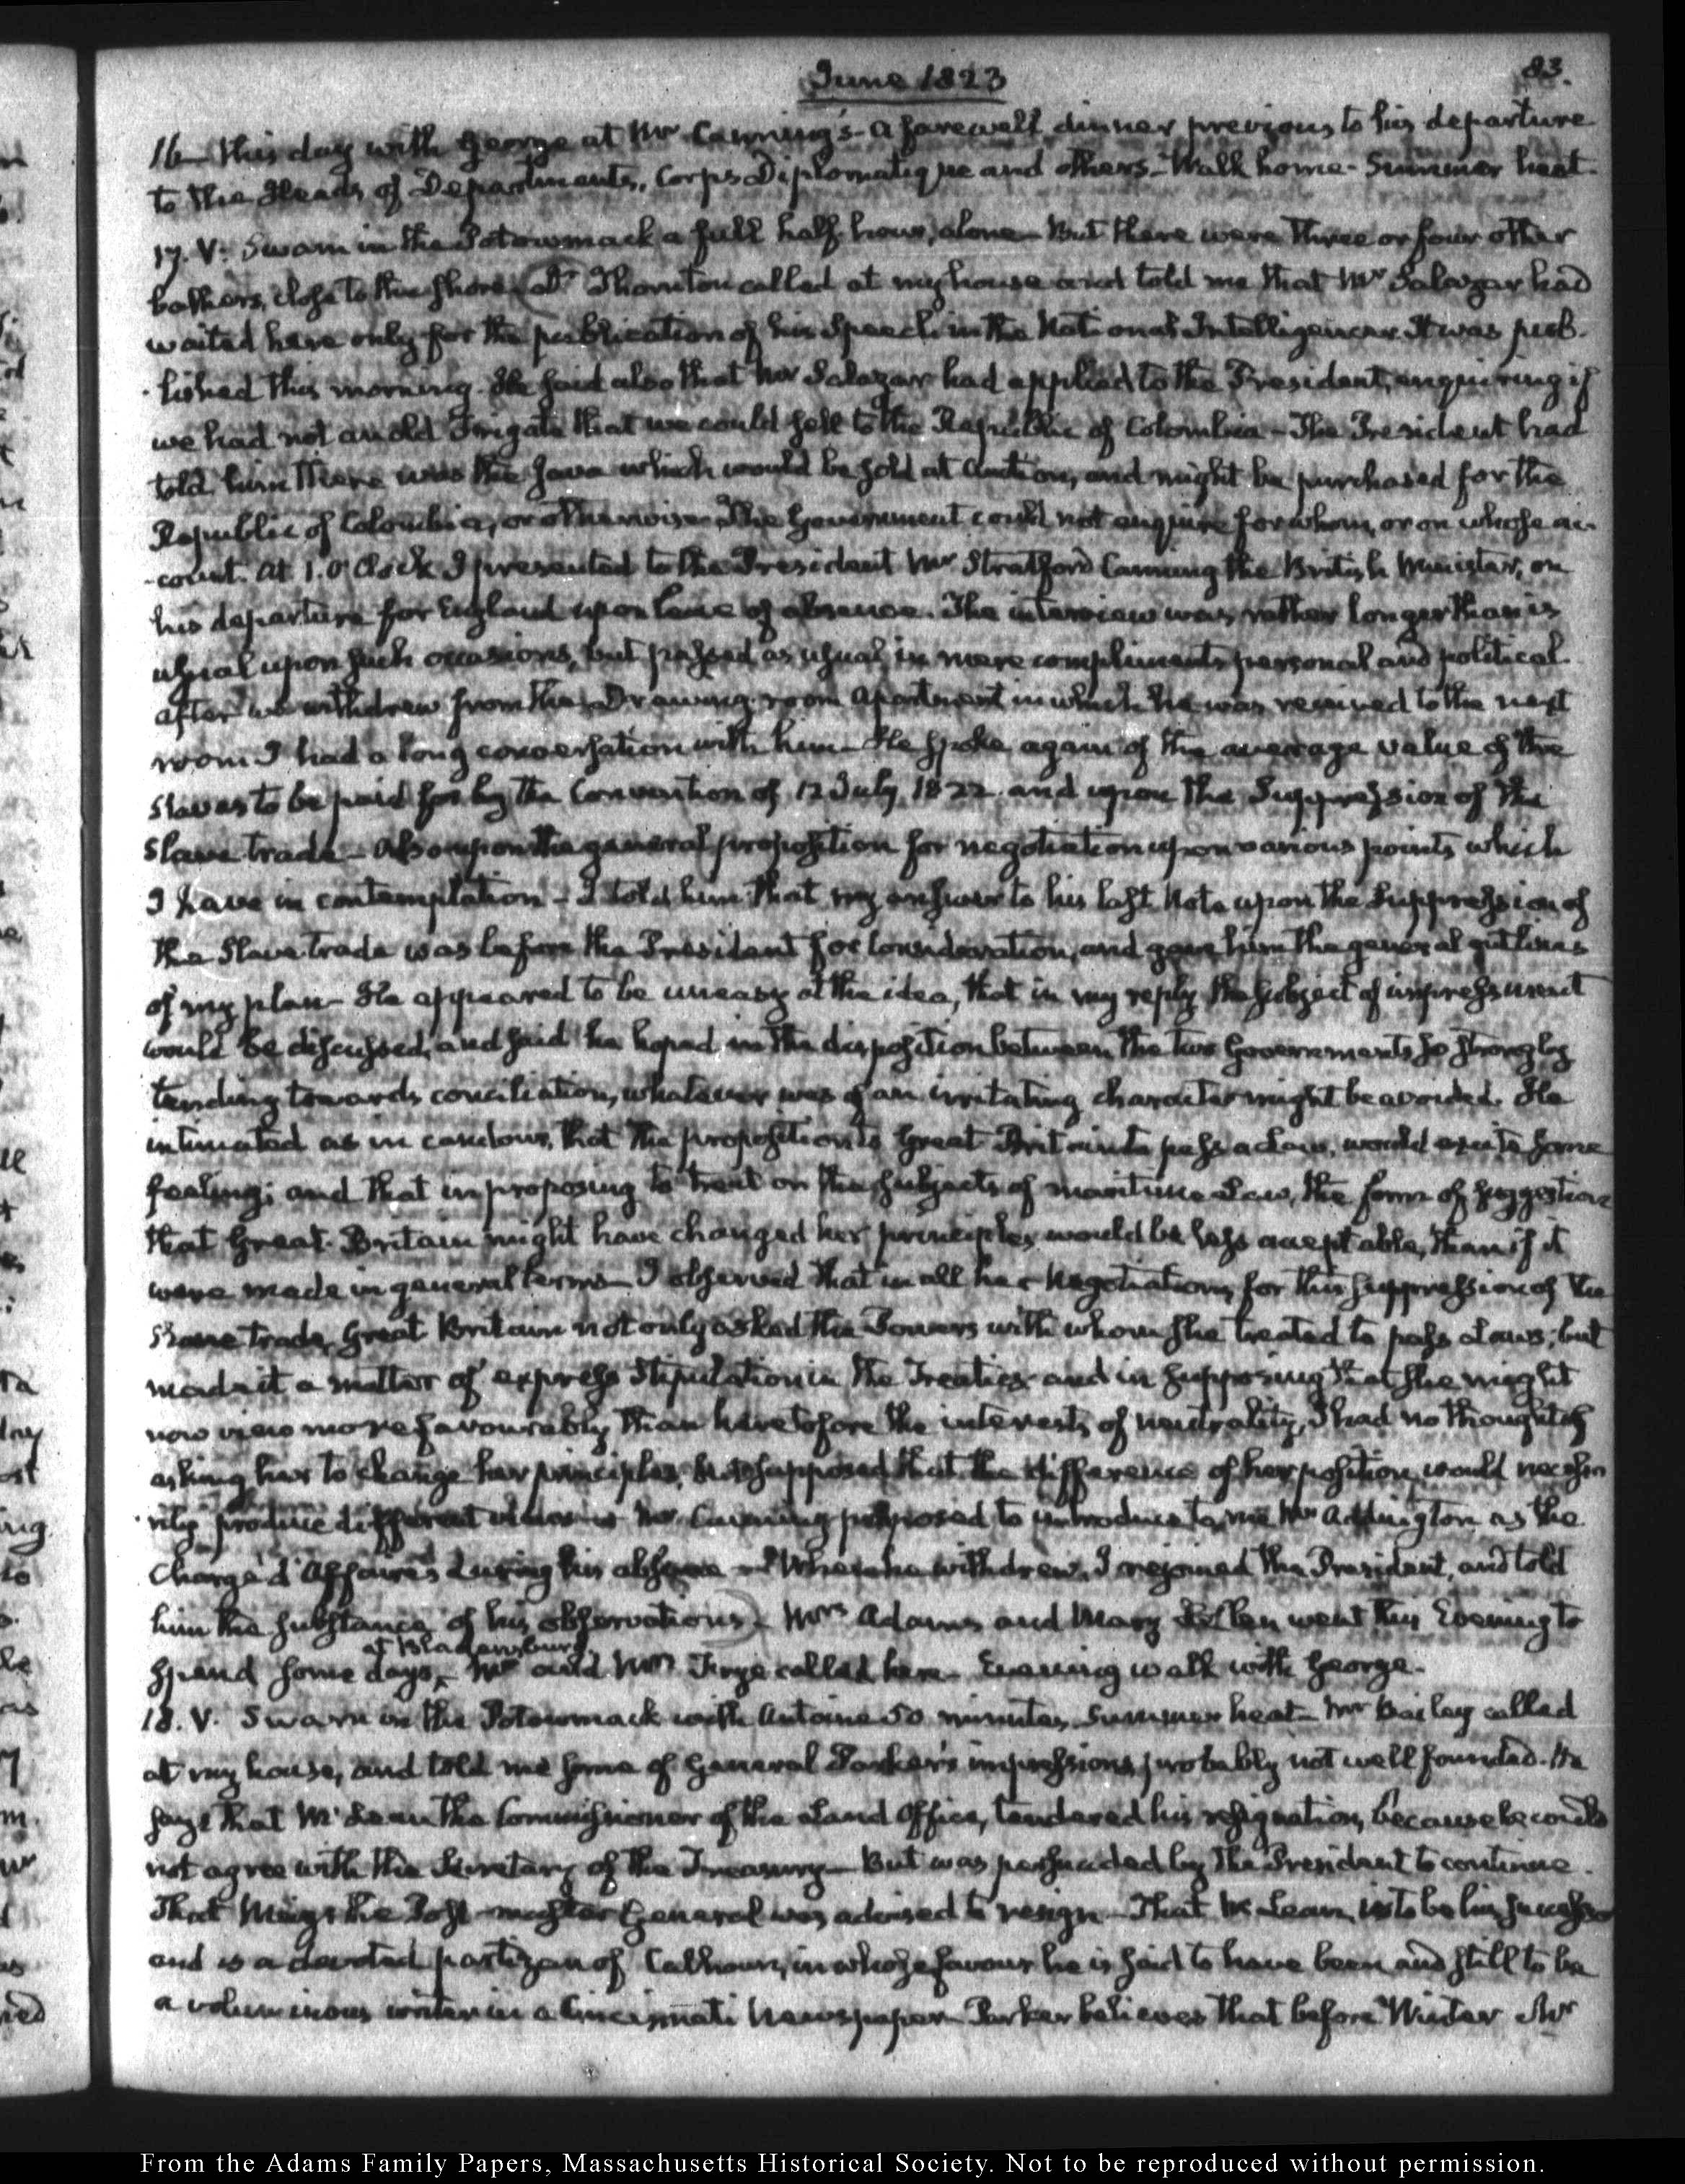 June 1823
83.
16— this day with George at Mr Canning's— A farewell dinner previous to his departure
to the Heads of Departments, Corps Diplomatique and others— Walk home— Summer heat.
17. V. Swam in the Potowmack a full half hour, alone— But there were three or four other
bathers, close to the shore. (Dr Thornton called at my house and told me that Mr Salazar had
waited here only for the publication of his Speech in the National Intelligencer. It was pub-
-lished this morning. He said also that Mr Salazar had applied to the President, enquiring if
we had not an old Frigate that we could sell to the Republic of Colombia— The President had
told him there was the Java which would be sold at Auction, and might be purchased for the
Republic of Colombia, or otherwise. The Government could not enquire for whom, or on whose ac-
-count. At 1. O'Clock I presented to the President Mr Stratford Canning the British Minister, on
his departure for England upon leave of absence. The interview was rather longer than is
usual upon such occasions, but passed as usual, in mere compliments personal and political.
After we withdrew from the Drawing-room apartment in which he was received to the next
room I had a long conversation with him— He spoke again of the average value of the
Slaves to be paid for by the Convention of 12 July 1822. and upon the Suppression of the
Slave trade— Also upon the general proposition for negotiation upon various points which
I have in contemplation— I told him that my answer to his last Note upon the Suppression of
the Slave trade was before the President for consideration, and gave him the general outlines
of my plan— He appeared to be uneasy at the idea, that in my reply the subject of impressment
would be discussed, and said he hoped in the disposition between the two Governments so strongly
tending towards conciliation, whatever was of an irritating character might be avoided. He
intimated as in candour, that the proposition to Great Britain to pass a Law, would excite some
feeling; and that in proposing to treat on the subjects of maritime Law, the form of suggestion
that Great-Britain might have changed her principles would be less acceptable, than if it
were made in general terms— I observed that in all her Negotiations for this suppression of the
Slave trade, Great Britain not only asked the Powers with whom she treated to pass Laws; but
made it a matter of express Stipulation in the Treaties— and in supposing that she might
now view more favourably than heretofore the interests of neutrality, I had no thought of
asking her to change her principles, but supposed that the difference of her position would necessa-
-rily produce different views— Mr Canning proposed to introduce to me Mr Addington as the
Chargé d'Affaires during his absence— When he withdrew, I rejoined the President, and told
him the substance of his observations.) Mrs Adams and Mary Hellen went this Evening to
spend some days, at Bladensburg. Mr and Mrs Frye called here— Evening walk with George.
18. V. Swam in the Potowmack with Antoine 50 minutes. Summer heat— Mr Bailey called
at my house, and told me some of General Parker's impressions, probably not well founded. He
says that McLean the Commissioner of the Land Office, tendered his resignation, because he could
not agree with the Secretary of the Treasury— But was persuaded by the President to continue.
That Meigs the Post-master General was advised to resign— That McLean is to be his successor
and is a devoted partizan of Calhoun, in whose favour he is said to have been and still to be
a voluminous writer in a Cincinnati Newspaper— Parker believes that before Winter Mr
From the Adams Family Papers, Massachusetts Historical Society. Not to be reproduced without permission.